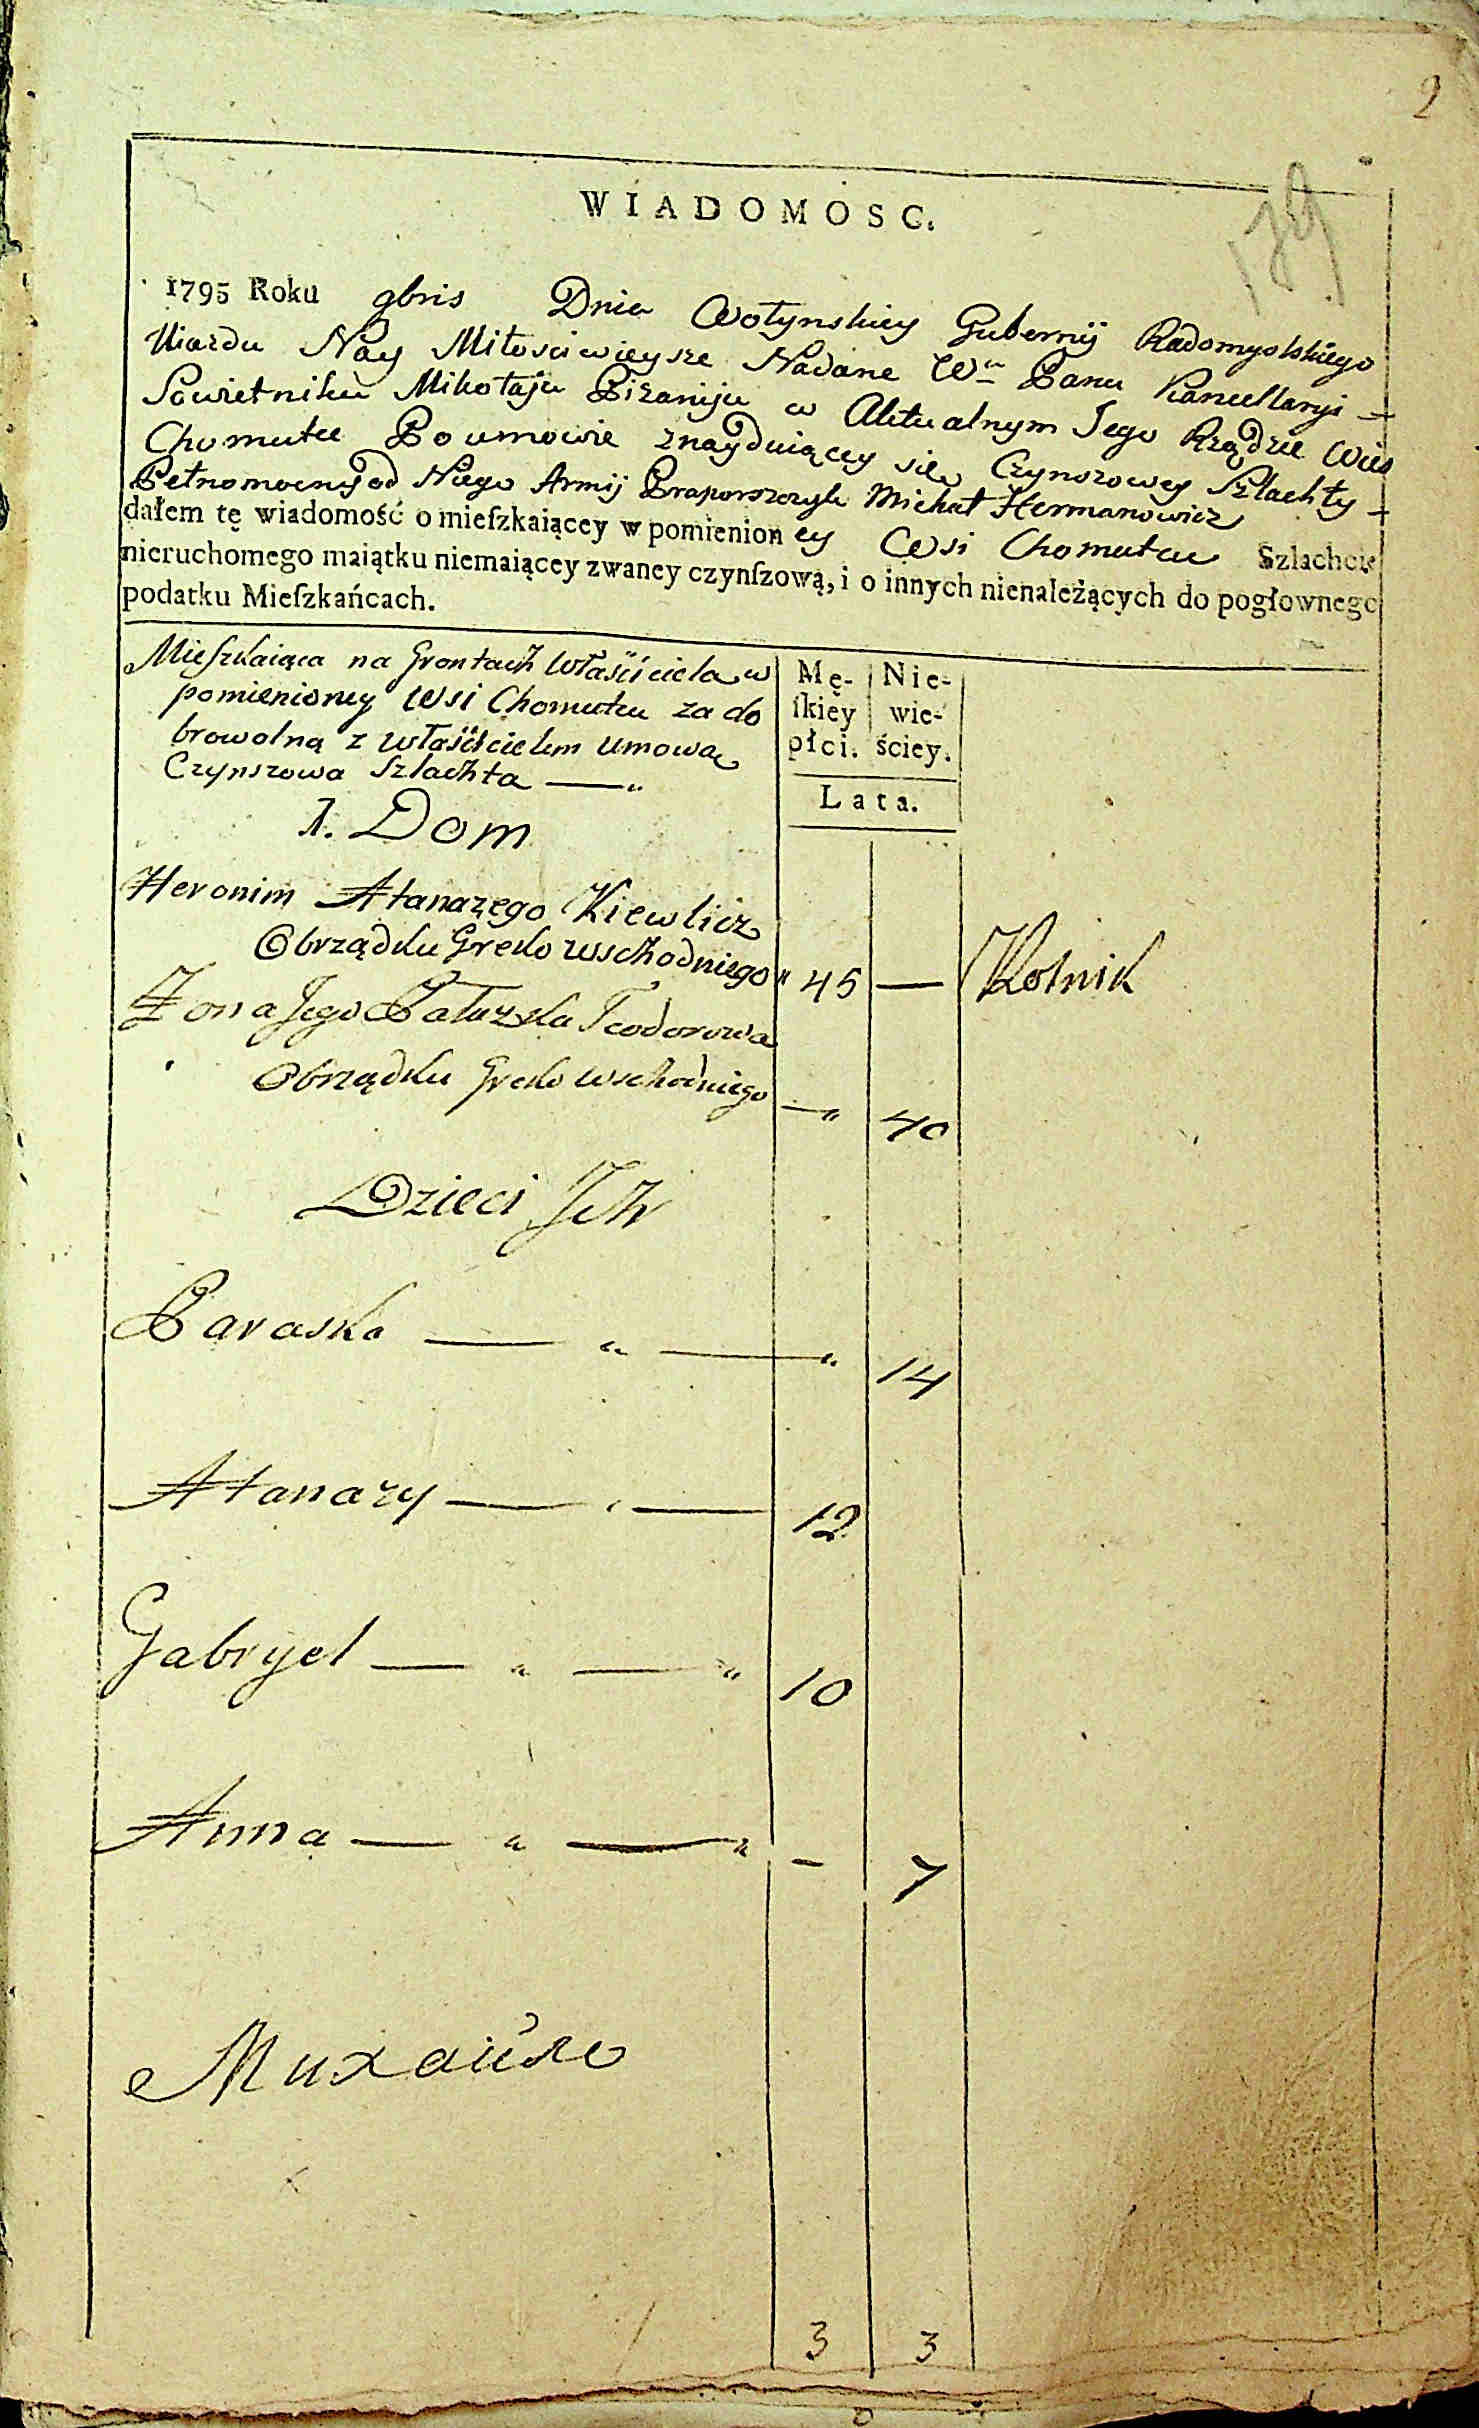 2
179
WIADOMOSC.
1795 Roku 9bris Dnia Wołynskiey Gubernij Radomyslskiego
Uiazdu Nay Miłosciwieysze Nadane Wu Panu Kancellaryi —
Sowietniku Mikołaju Biżaniju w Aktualnym Jego Rządzie Wieś
Chomutce Po umowie znayduiącey się Czynszowey Szlachty —
Pełnomocny od Niego Armij Praporszczyk Michał Hermanowicz
dałem tę wiadomość o mieſzkaiącey w pomienion ey Wsi Chomutcu Szlachcie
nieruchomego maiątku niemaiącey zwaney czynſzową, i o innych nienależących do pogłownego
podatku Mieſzkańcach.
Mieſzkaiąca na Grontach Właściciela w
pomienioney Wsi Chomutcu za do
browolną z właścicielem umową
Czynszowa Szlachta —"
Mę- Nie-
ſkiey wie-
płci. ściey.
Lata.
1. Dom
Heronim Atanazego Kiewlicz
Obrządku Greko wschodniego " 45 — Rolnik
Żona Jego Teodorowa
Obrządku Greko wschodniego —" 40
Dzieci Ich
Paraska — " — " 14
Atanazy — " — 12
Gabryel — " — " 10
Anna — " — " - 7
Михайло
3 3